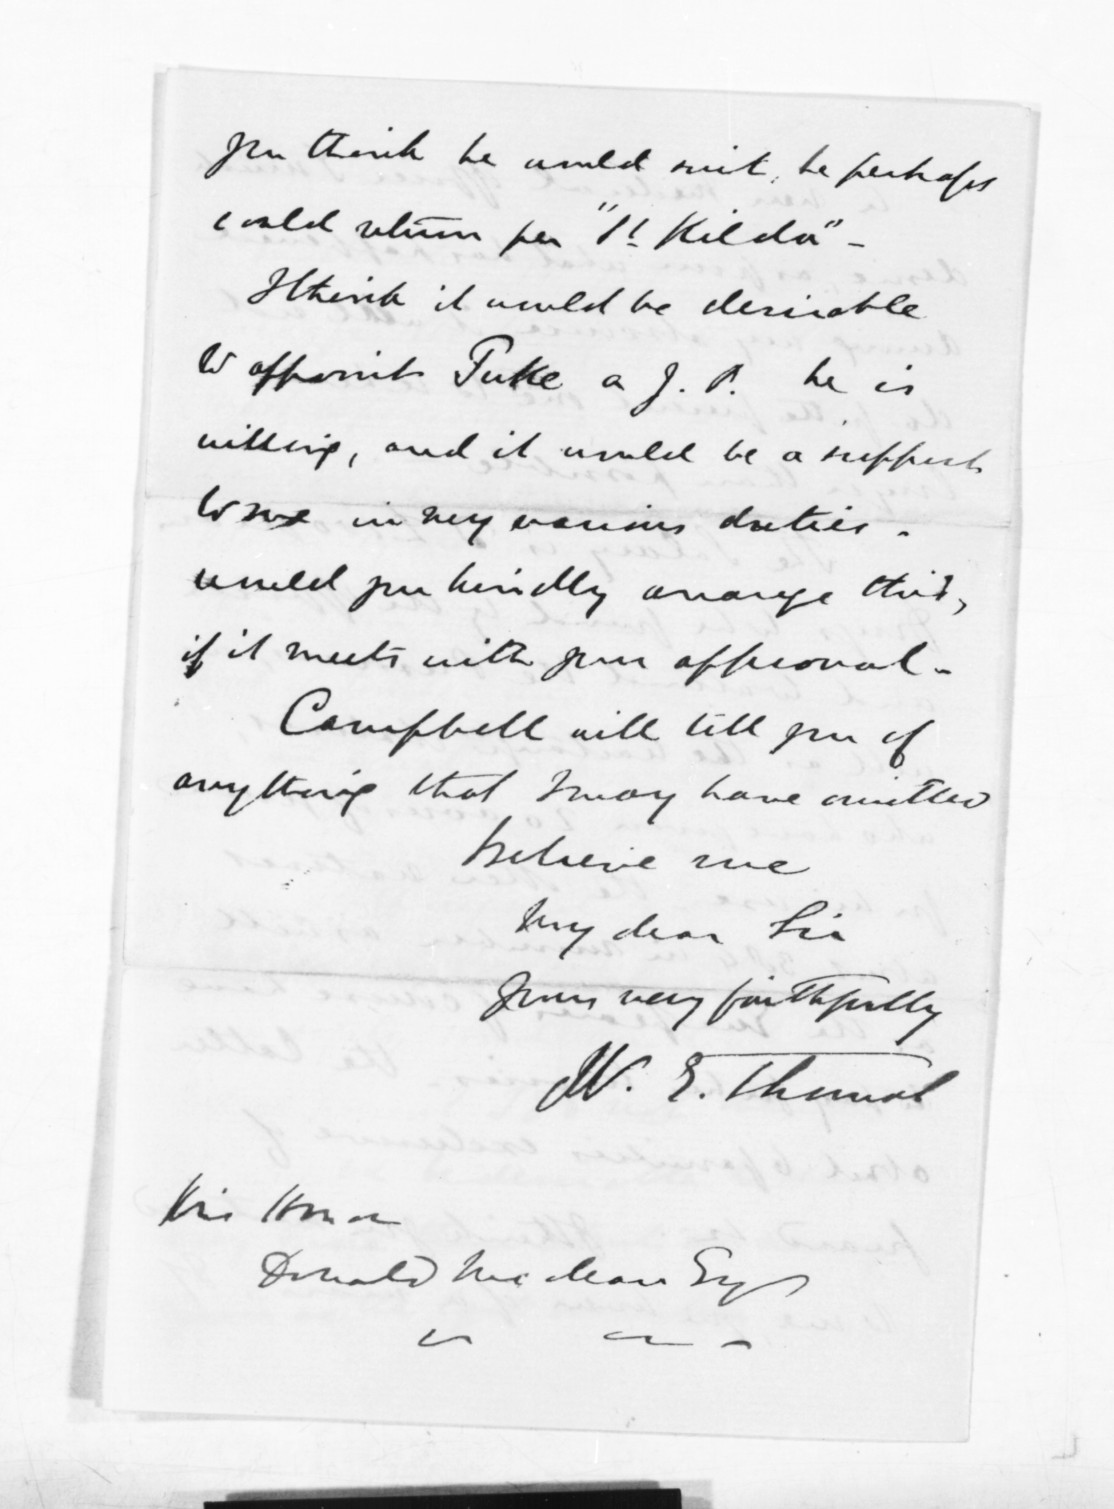 you think he would suit, he perhaps
could return per "St Kilda" -
I think it would be desirable
to appoint Tuke a J. P. he is
willing, and it would be a support
to me in my various duties -
would you kindly arrange this,
if it meets with your approval -
Campbell will tell you of
anything that I may have omitted
believe me
My dear Sir
Yours very faithfully
W. E. Thomas
His Honor
Donald McLean Esq